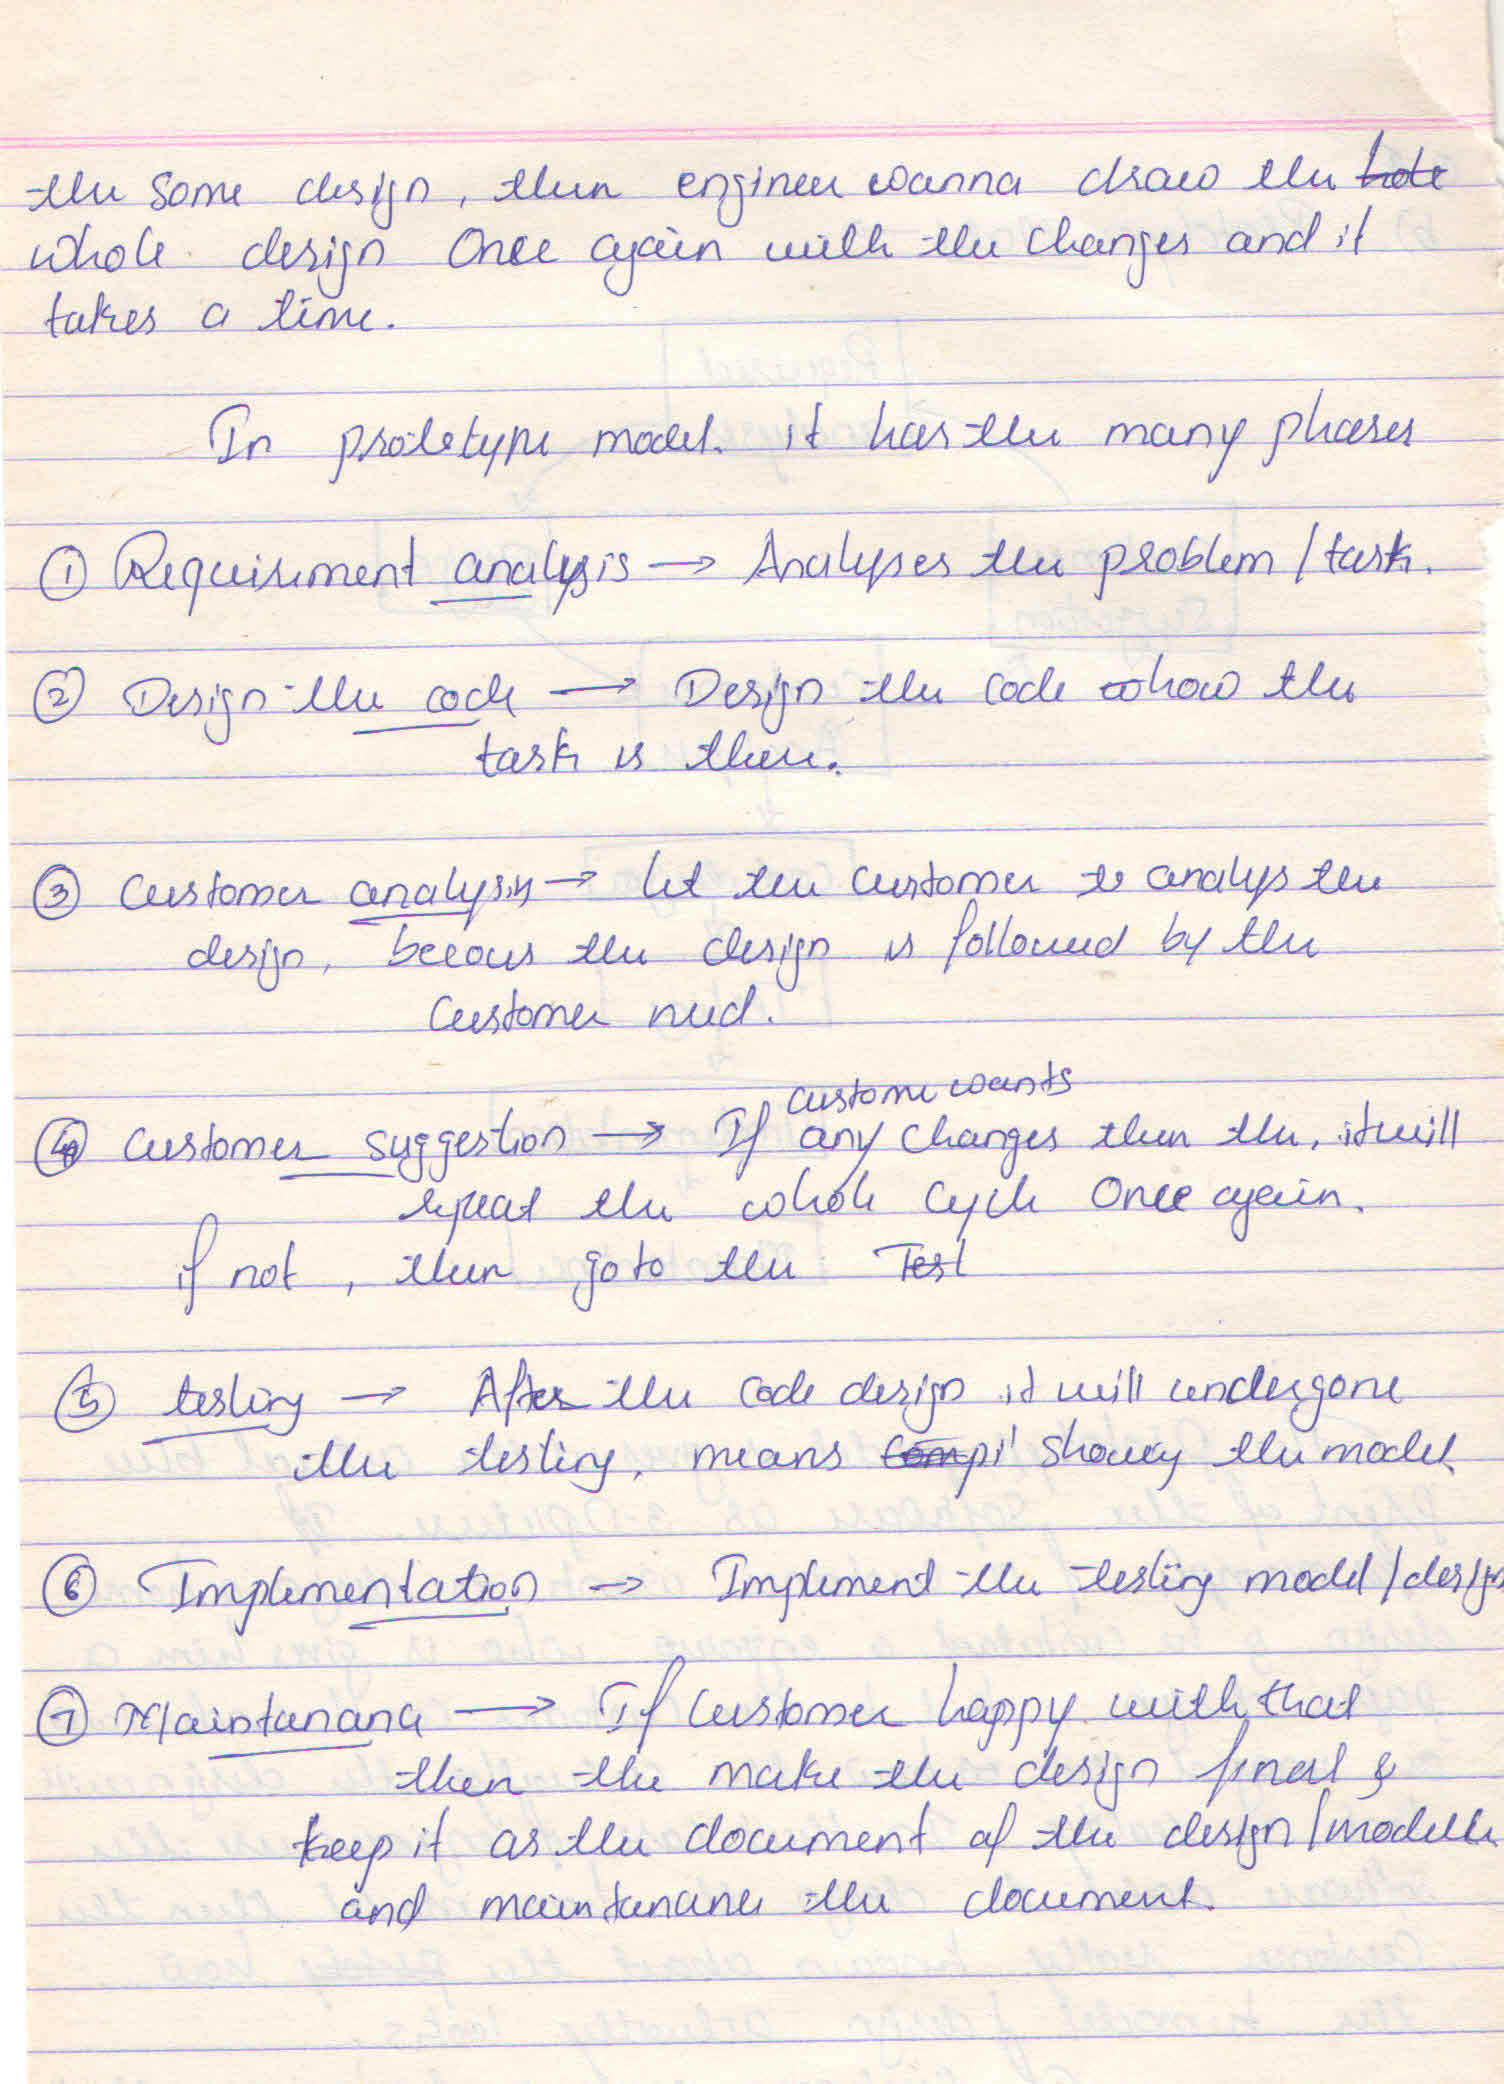 the some design, then engineer wanna draw the hole
whole design Once again with the changes and it
takes a time.
In prototype model. it has the many phases
① Requirement analysis → Analyses the problem / task.
② Design the code → Design the code how the
task is there.
③ Customer analysis → let the customer to analys the
design, becous the design is followed by the
Customer need.
customer wants
④ Customer suggestion → If any changes then the, it will
repeat the whole cycle Once again.
if not, then go to the Test
⑤ testing → After the code design it will undergone
the testing, means compi showy the model
⑥ Implementation → Implement the testing model / design
⑦ Maintanance → If customer happy with that
then the make the design final &
keep it as the document of the design / modelle
and maintanance the document.